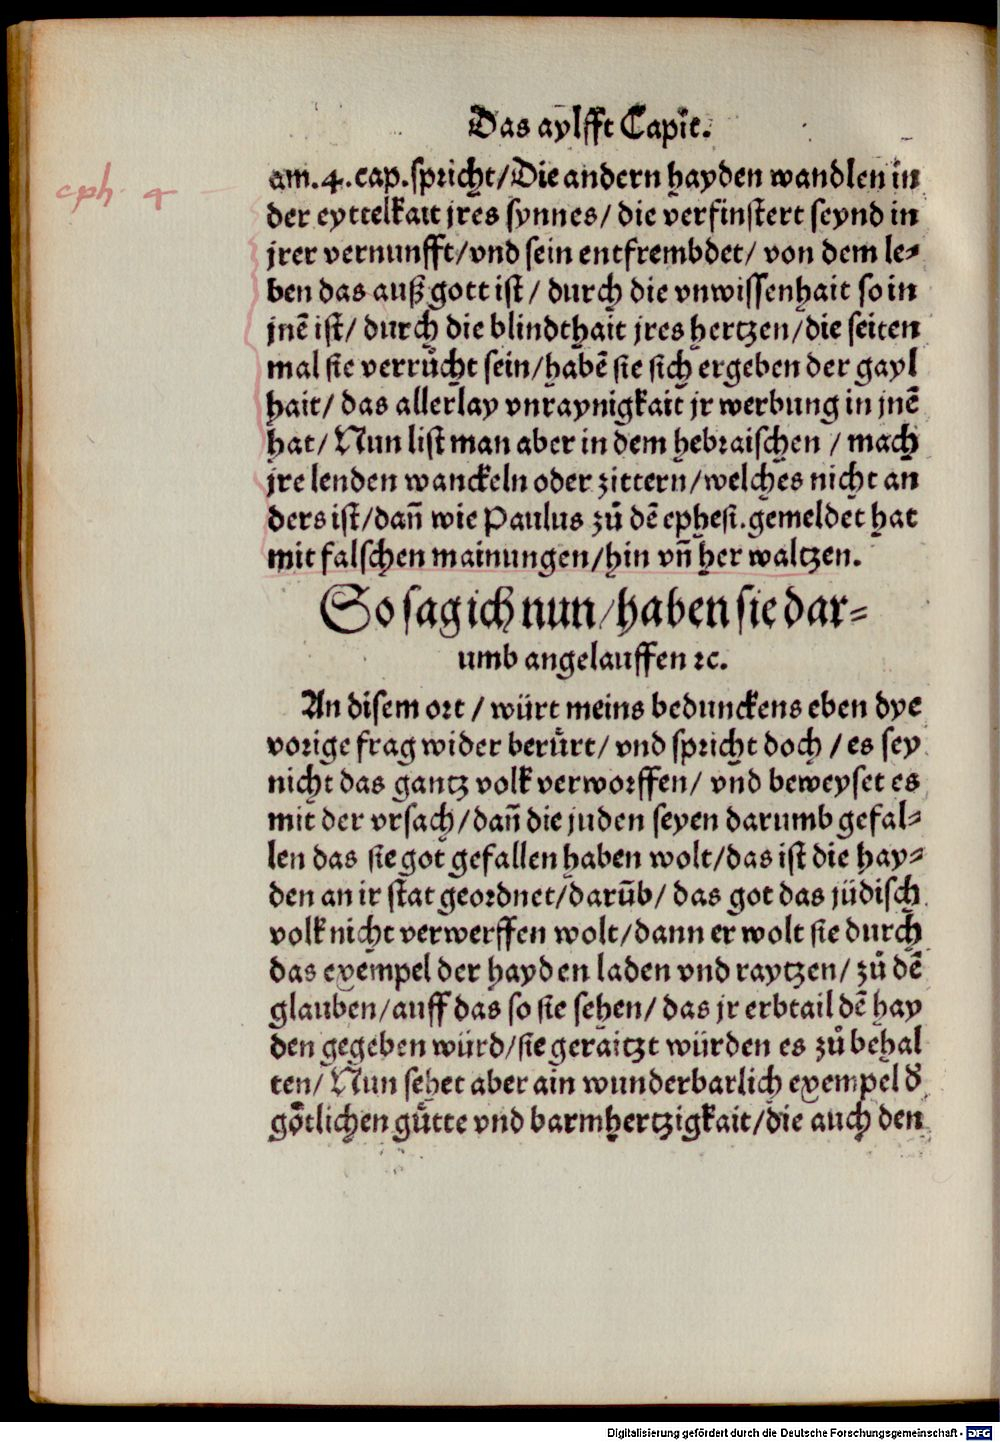 Das aylfft Capit.
eph. 4
am.4.cap.spricht/Die andern hayden wandlen in
der eyttelkait jres synnes/ die verfinstert seynd in
jrer vernunfft/vnd sein entfrembdet/ von dem le⸗
ben das auß gott ist/ durch die vnwissenhait so in
jnē ist/ durch die blindthait jres hertzen/die seiten
mal sie verrůcht sein/habē sie sich ergeben der gayl
hait/ das allerlay vnraynigkait jr werbung in jnē
hat/ Nun list man aber in dem hebraischen / mach
jre lenden wanckeln oder zittern/welches nicht an
ders ist/dañ wie Paulus zů dē ephesi.gemeldet hat
mit falschen mainungen/hin vñ her waltzen.
So sag ich nun/haben sie dar⸗
umb angelauffen ꝛc.
An disem ort / würt meins bedunckens eben dye
vorige frag wider berůrt/ vnd spricht doch / es sey
nicht das gantz volk verworffen/ vnd beweyset es
mit der vrsach/dañ die juden seyen darumb gefal⸗
len das sie got gefallen haben wolt/das ist die hay⸗
den an ir stat geordnet/darūb/ das got das jüdisch
volk nicht verwerffen wolt/dann er wolt sie durch
das exempel der hayden laden vnd raytzen/ zů dē
glauben/auff das so sie sehen/ das jr erbtail dē hay
den gegeben würd/sie geraitzt würden es zů behal
ten/ Nun sehet aber ain wunderbarlich exempel d̕
gőtlichen gůtte vnd barmhertzigkait/die auch den
Digitalisierung gefördert durch die Deutsche Forschungsgemeinschaft - DFG